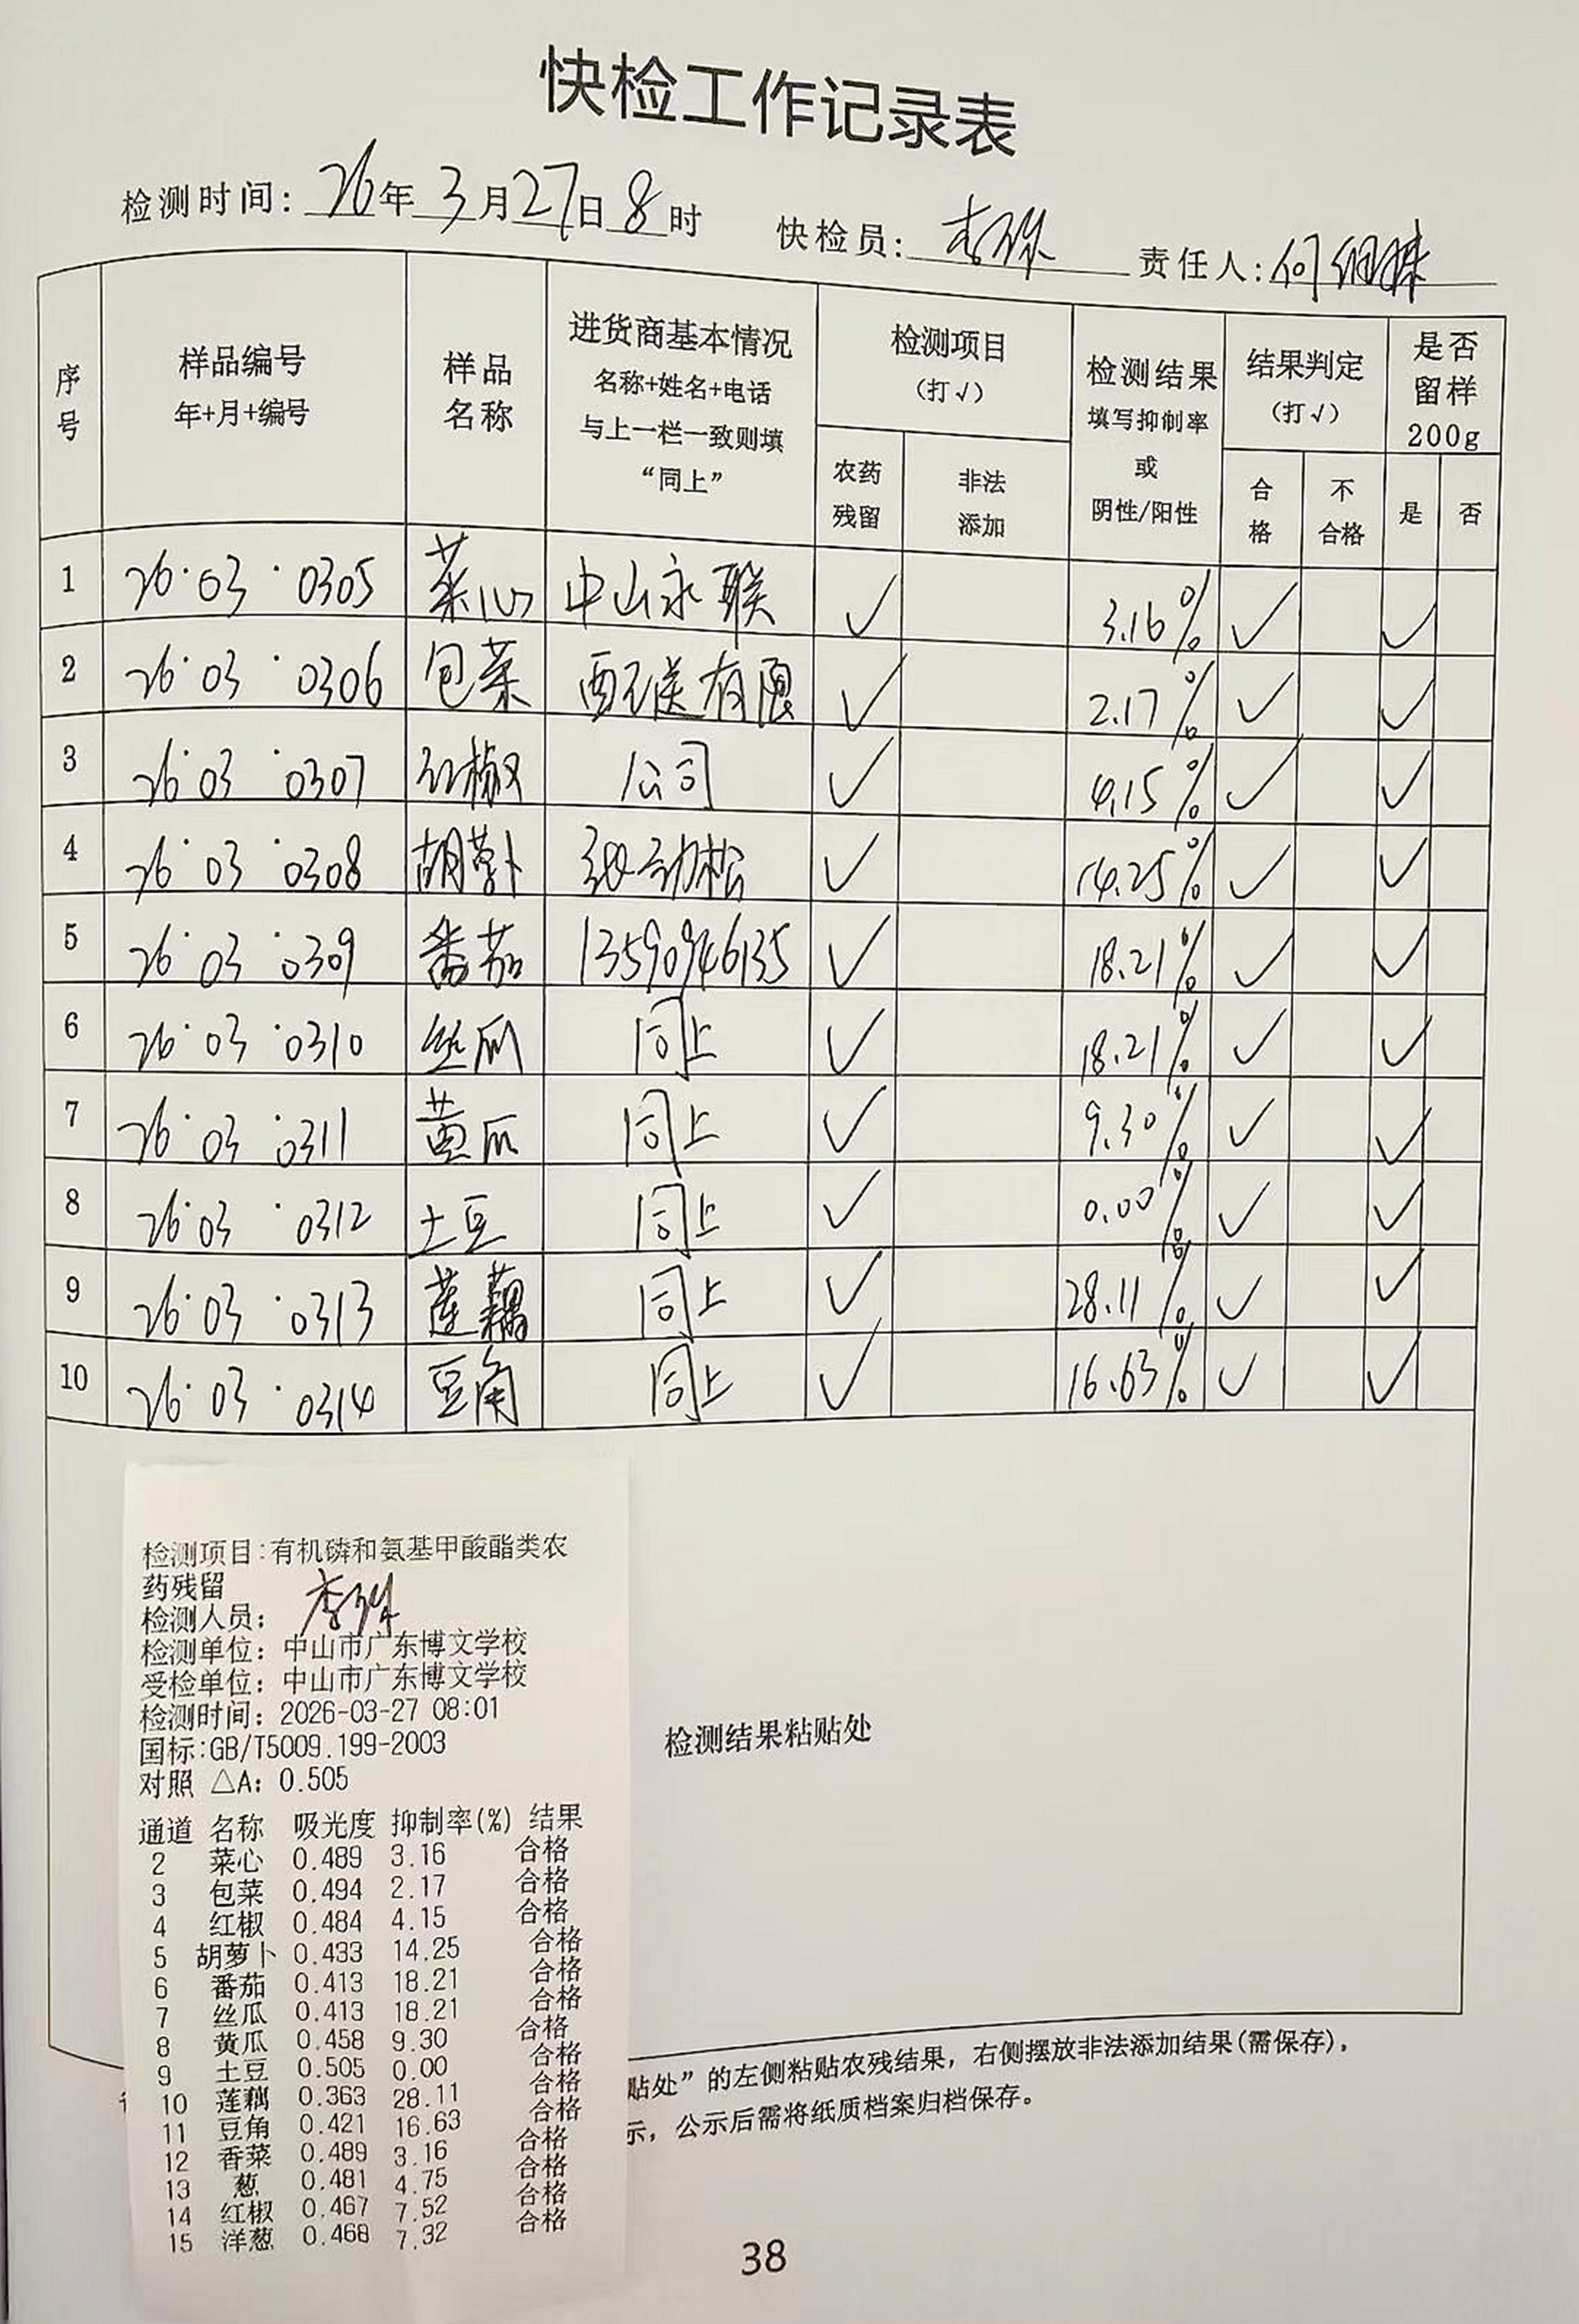 快检工作记录表
检测时间: 26年3月27日8时 快检员: 责任人: 何
序号 样品编号 年+月+编号 样品名称 进货商基本情况 名称+姓名+电话 与上一栏一致则填“同上” 检测项目 (打√) 农药残留 非法添加 检测结果 填写抑制率 或 阴性/阳性 结果判定 (打√) 合格 不合格 是否留样200g 是 否
1 26·03·0305 菜心 中山永联 √ 3.16% √ √
2 26·03·0306 包菜 配送有限 √ 2.17% √ √
3 26·03·0307 红椒 公司 √ 4.15% √ √
4 26·03·0308 胡萝卜 劲松 √ 14.25% √ √
5 26·03·0309 番茄 13590946135 √ 18.21% √ √
6 26·03·0310 丝瓜 同上 √ 18.21% √ √
7 26·03·0311 黄瓜 同上 √ 9.30% √ √
8 26·03·0312 土豆 同上 √ 0.00% √ √
9 26·03·0313 莲藕 同上 √ 28.11% √ √
10 26·03·0314 豆角 同上 √ 16.63% √ √
检测项目:有机磷和氨基甲酸酯类农
药残留
检测人员:
检测单位: 中山市广东博文学校
受检单位: 中山市广东博文学校
检测时间: 2026-03-27 08:01
国标:GB/T5009.199-2003
对照 △A: 0.505
通道 名称 吸光度 抑制率(%) 结果
2 菜心 0.489 3.16 合格
3 包菜 0.494 2.17 合格
4 红椒 0.484 4.15 合格
5 胡萝卜 0.433 14.25 合格
6 番茄 0.413 18.21 合格
7 丝瓜 0.413 18.21 合格
8 黄瓜 0.458 9.30 合格
9 土豆 0.505 0.00 合格
10 莲藕 0.363 28.11 合格
11 豆角 0.421 16.63 合格
12 香菜 0.489 3.16 合格
13 葱 0.481 4.75 合格
14 红椒 0.467 7.52 合格
15 洋葱 0.468 7.32 合格
检测结果粘贴处
贴处”的左侧粘贴农残结果，右侧摆放非法添加结果(需保存)。
示，公示后需将纸质档案归档保存。
38